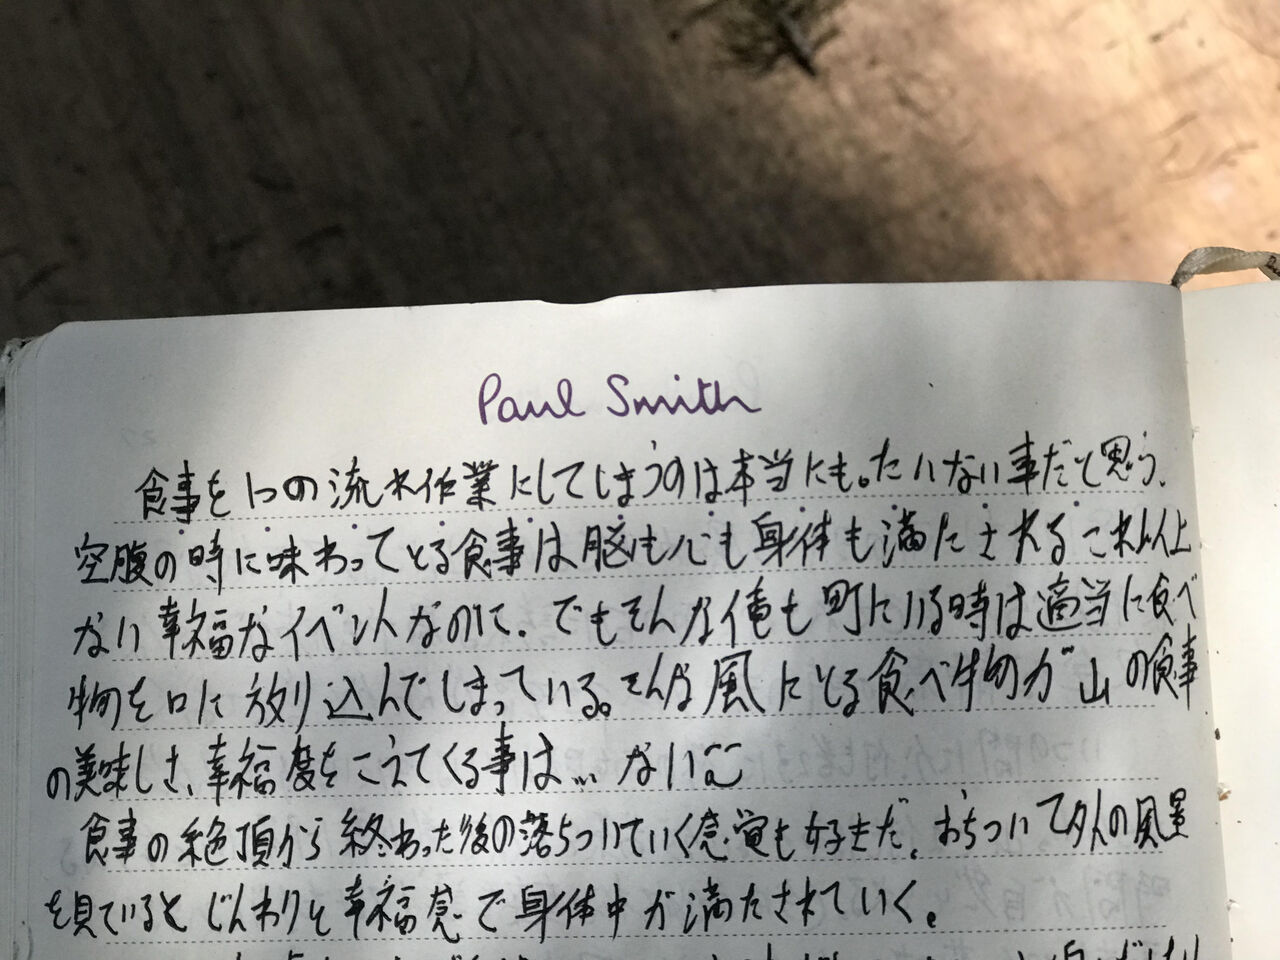 Paul Smith
食事を1つの流れ作業にしてしまうのは本当にもったいない事だと思う。
空腹の時に味わってとる食事は脳も心も身体も満たされるこれ以上
ない幸福なイベントなのに。でもそんな俺も町にいる時は適当に食べ
物を口に放り込んでしまっている。そんな風にとる食べ物が山の食事
の美味しさ、幸福度をこえてくる事は…ない
食事の絶頂から終わった後の落ちついていく感覚も好きだ。おちついて の風景
を見ているとじんわりと幸福感で身体中が満たされていく。